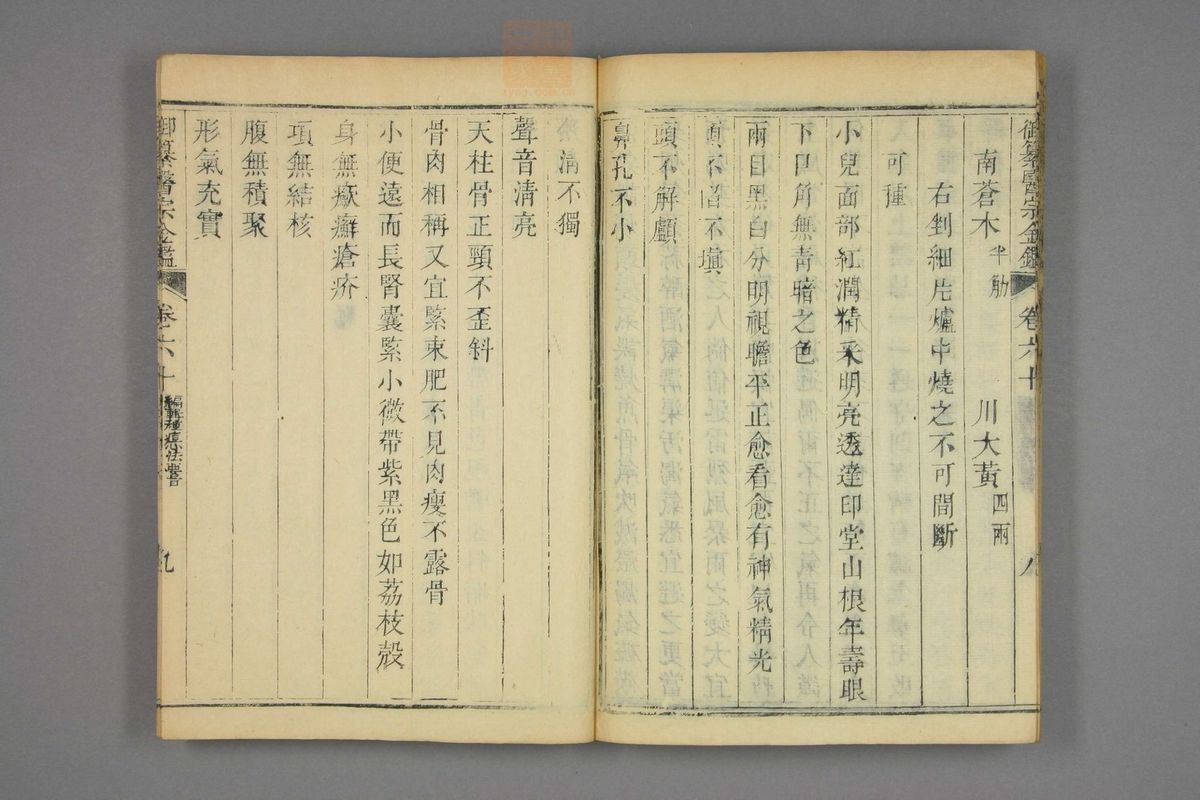 御纂醫宗金鑑 卷六十 八
南蒼朮 半觔 川大黃 四兩
右剉細片爐中燒之不可間斷
可種
小兒面部紅潤精采明亮透達印堂山根年壽眼
下口角無青暗之色
兩目黑白分明視瞻平正愈看愈有神氣精光
頭不解顱
鼻孔不小
清不獨
聲音清亮
天柱骨正頸不歪斜
骨肉相稱又宜緊束肥不見肉瘦不露骨
小便遠而長腎囊緊小微帶紫黑色如荔枝殼
身無癥癬瘡疥
項無結核
腹無積聚
形氣充實
御纂醫宗金鑑 卷六十 編輯種痘心法要旨 九